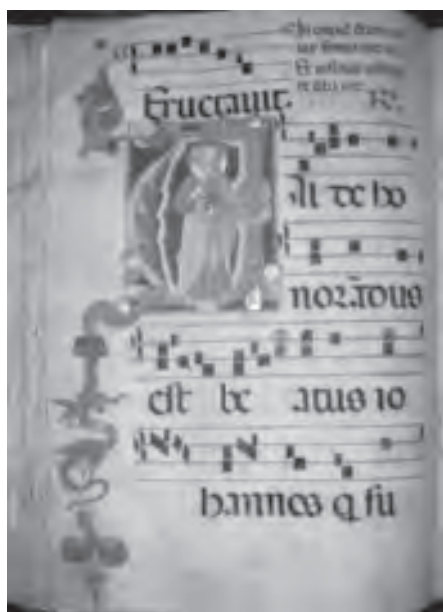 Eructauit. R.
Val de ho
norādus
est be atus io
hannes q su